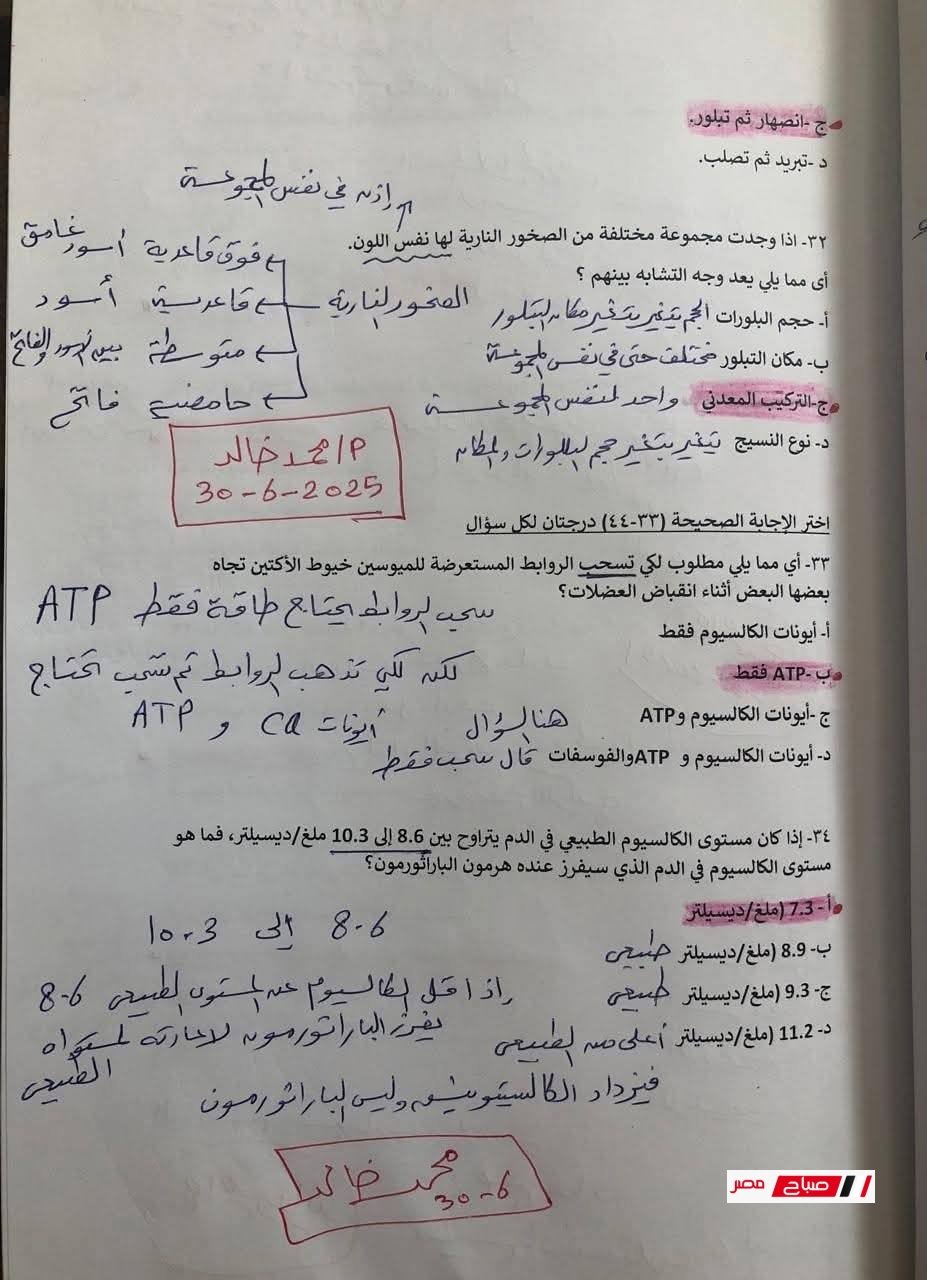 ج -انصهار ثم تبلور.
د -تبريد ثم تصلب.
إذن في نفس المجموعة
٣٢- اذا وجدت مجموعة مختلفة من الصخور النارية لها نفس اللون.
أى مما يلي يعد وجه التشابه بينهم ؟
الصخور النارية
فوق قاعدية أسود غامق
قاعدية أسود
متوسطة بين الأسود والفاتح
حامضية فاتح
أ- حجم البلورات الحجم يتغير بتغير مكان التبلور
ب- مكان التبلور مختلف حتى في نفس المجموعة
ج-التركيب المعدني واحد لنفس المجموعة
د- نوع النسيج يتغير بتغير حجم البلورات والمكان
م/محمد خالد
30-6-2025
اختر الإجابة الصحيحة (٣٣-٤٤) درجتان لكل سؤال
٣٣- أي مما يلي مطلوب لكي تسحب الروابط المستعرضة للميوسين خيوط الأكتين تجاه
بعضها البعض أثناء انقباض العضلات؟
سحب الروابط يحتاج طاقة فقط ATP
أ- أيونات الكالسيوم فقط
لكن لكي تذهب الروابط ثم تسحب تحتاج
ب -ATP فقط
أيونات Ca و ATP
ج -أيونات الكالسيوم وATP هنا السؤال
د- أيونات الكالسيوم و ATPوالفوسفات قال سحب فقط
٣٤- إذا كان مستوى الكالسيوم الطبيعي في الدم يتراوح بين 8.6 إلى 10.3 ملغ/ديسيلتر، فما هو
مستوى الكالسيوم في الدم الذي سيفرز عنده هرمون الباراثورمون؟
أ- 7.3 (ملغ/ديسيلتر
8.6 إلى 10.3
ب- 8.9 (ملغ/ديسيلتر طبيعي
ج- 9.3 (ملغ/ديسيلتر طبيعي
إذا قل الكالسيوم عن المستوى الطبيعي 8.6
د- 11.2 (ملغ/ديسيلتر أعلى من الطبيعي
يفرز الباراثورمون لاعادته لمستواه
الطبيعي
فيزداد الكالسيتونين وليس الباراثورمون
محمد خالد
30-6
صباح مصر